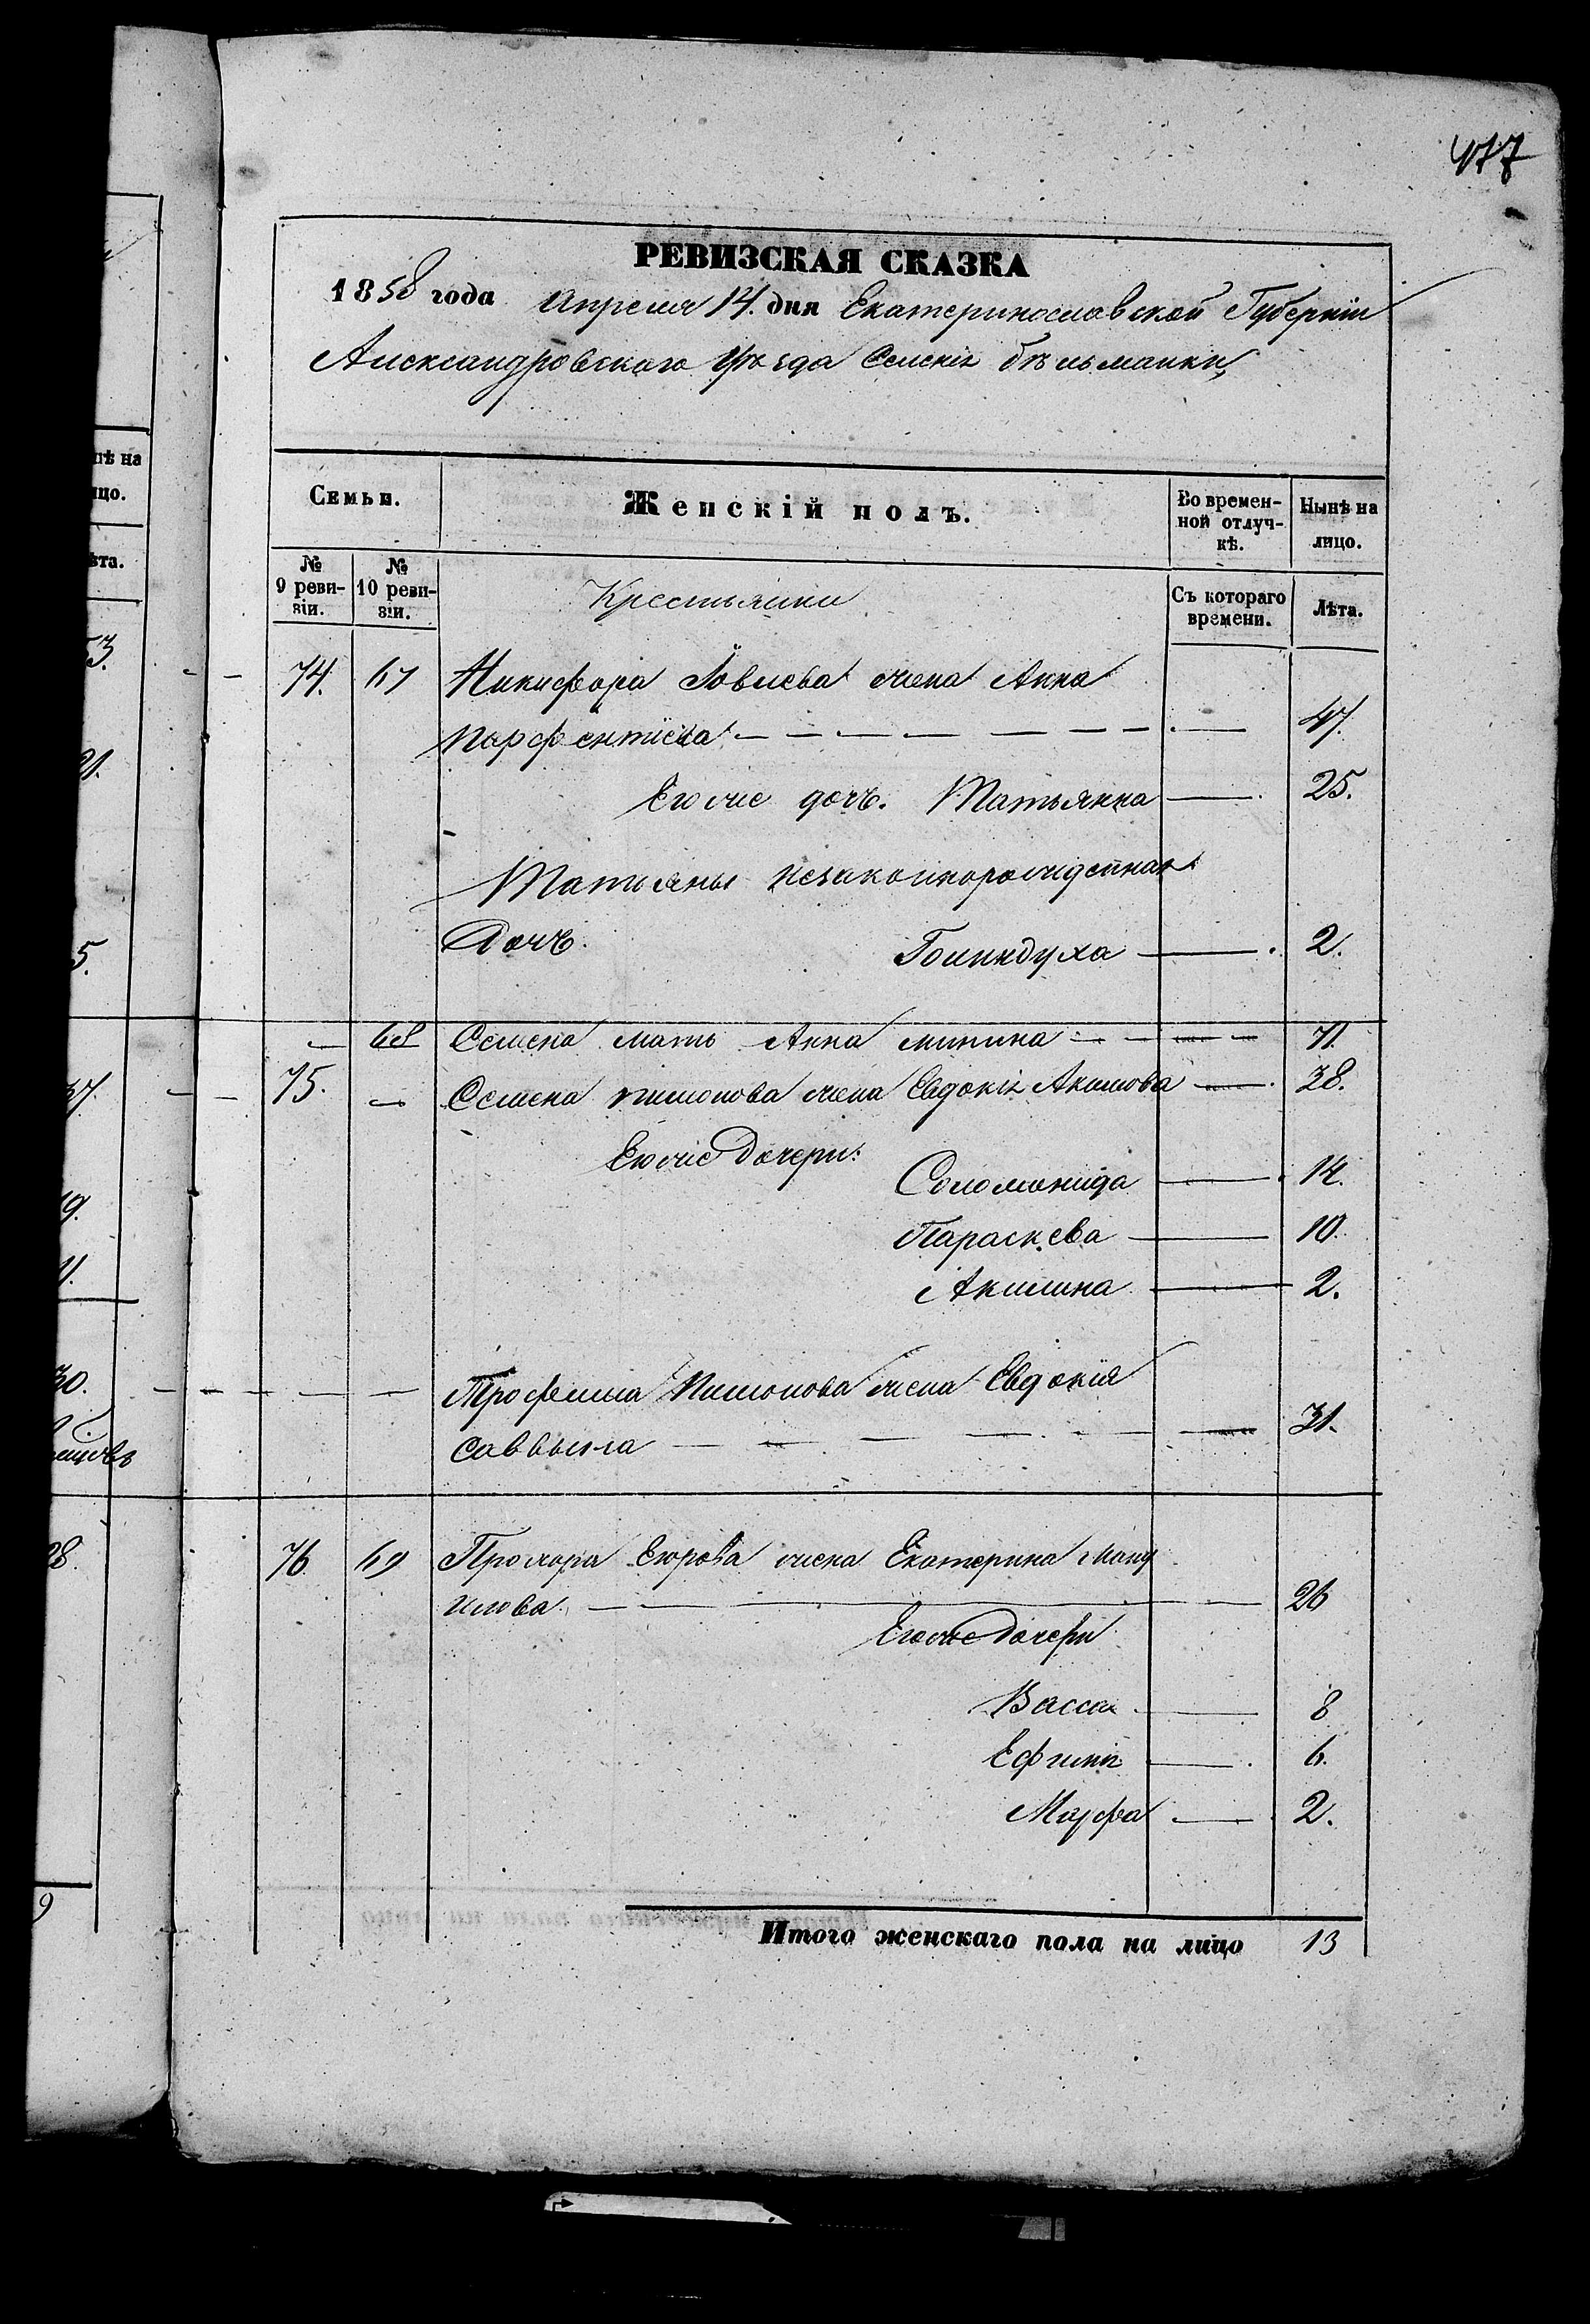 477
РЕВИЗСКАЯ СКАЗКА
1858 года Апреля 14. дня Екатеринославской Губерніи
Александровскаго Уѣзда Селенія бѣльманки
Семьи.
Женскій полъ.
Во времен-
ной отлуч-
кѣ.
Нынѣ на
лицо.
№
9 реви-
зіи.
№
10 реви-
зіи.
Крестьянки
Съ котораго
времени.
Лѣта.
74. 67 Никифора Іовлева жена Анна
Парфентіева 47.
Его же дочь. Татьянна 25.
Татьяны незаконнорожденная
Дочь. Голиндуха 2.
68 Семена мать Анна минина 71
75. Семена пимонова жена Евдокія Акимова 38.
Его же Дочери:
Соломонида 14.
Параскева 10.
Акилина 2.
Трофима Пимонова жена Евдокія
Саввына 31.
76. 69 Прохора Егорова жена Екатерина Ману
илова. 26
Его же Дочери
Васса 8
Ефимія 6.
Марфа 2.
Итого женскаго пола на лицо 13
нѣ на
ицо.
ѣта.
53.
21.
5.
37.
19.
11.
30.
28.
9